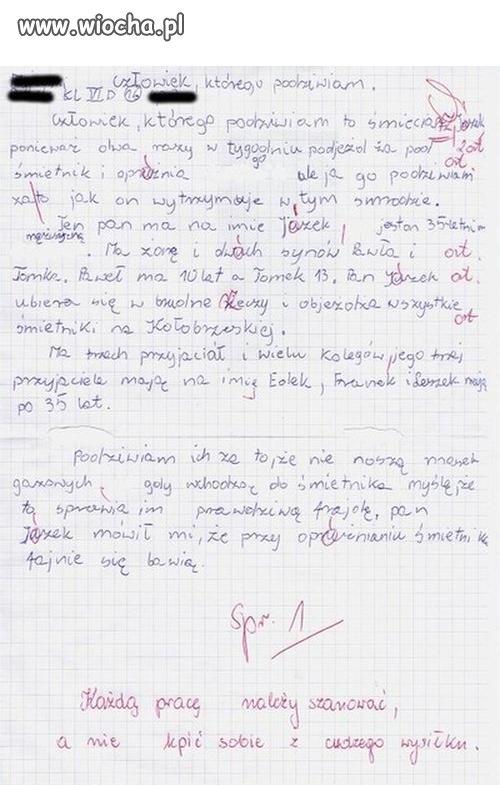 www.wiocha.pl
Człowiek, którego podziwiam.
KL VII D 26
Człowiek, którego podziwiam to śmieciarz Jozek
ponieważ dwa razy w tygodniu podjeżdża pod ort
śmietnik i opróżnia go ale ja go podziwiam ort
za to jak on wytrzymuje w tym smrodzie.
Ten pan ma na imię Józek, jest on 35-letnim
mężczyzną. Ma żonę i dwóch synów Pawła i ort.
Tomka. Paweł ma 10 lat a Tomek 13. Pan Józek ort.
ubiera się w brudne rzeczy i objeżdża wszystkie
śmietniki na Kołobrzeskiej. ort
Ma trzech przyjaciół i wielu kolegów, jego trzej
przyjaciele mają na imię Lolek, Franek i Leszek mają
po 35 lat.
Podziwiam ich za to, że nie noszą masek
gazowych, gdy wchodzą do śmietnika myślę, że
to sprawia im prawdziwą frajdę, pan
Józek mówił mi, że przy opróżnianiu śmietnika
fajnie się bawią.
Spr. 1
Każdą pracę należy szanować,
a nie kpić sobie z cudzego wysiłku.